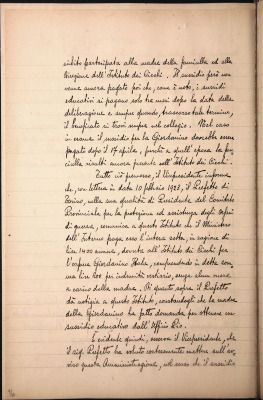 subito partecipata alla madre della fanciulla ed alla
Direzione dell'Istituto dei Ciechi. Il sussidio però non
venne ancora pagato poi chè, come è noto, i sussidi
educativi si pagano solo tre mesi dopo la data della
deliberazione e sempre quando, trascorso tale termine,
il beneficato si trovi sempre nel collegio. Nel caso
in esame il sussidio per la Giordanino dovrebbe essere
pagato dopo il 17 aprile, purchè a quell'epoca la fan-
ciulla risulti ancora presente nell'Istituto dei Ciechi.
Tutto ciò premesso, il Vicepresidente informa
che, con lettera in data 10 febbraio 1923, il Prefetto di
Torino, nella sua qualità di Presidente del Comitato
Provinciale per la protezione ed assistenza degli orfani
di guerra, comunica a questo Istituto che il Ministero
dell'Interno paga esso l'intera retta, in ragione di
lire 1400 annue, dovuta all'Istituto dei Ciechi per
l'orfana Giordanino Itala, comprendendo in detta som-
ma lire 200 per indennità vestiario, senza alcun onere
a carico della madre. Di quanto sopra il Prefetto
dà notizia a questo Istituto, constandogli che la madre
della Giordanino ha fatto domanda per ottenere un
sussidio educativo dall'Opera Pia.
È evidente quindi, osserva il Vicepresidente, che
il sig. Prefetto ha voluto cortesemente mettere sull'av-
viso questa Amministrazione, nel senso che il sussidio